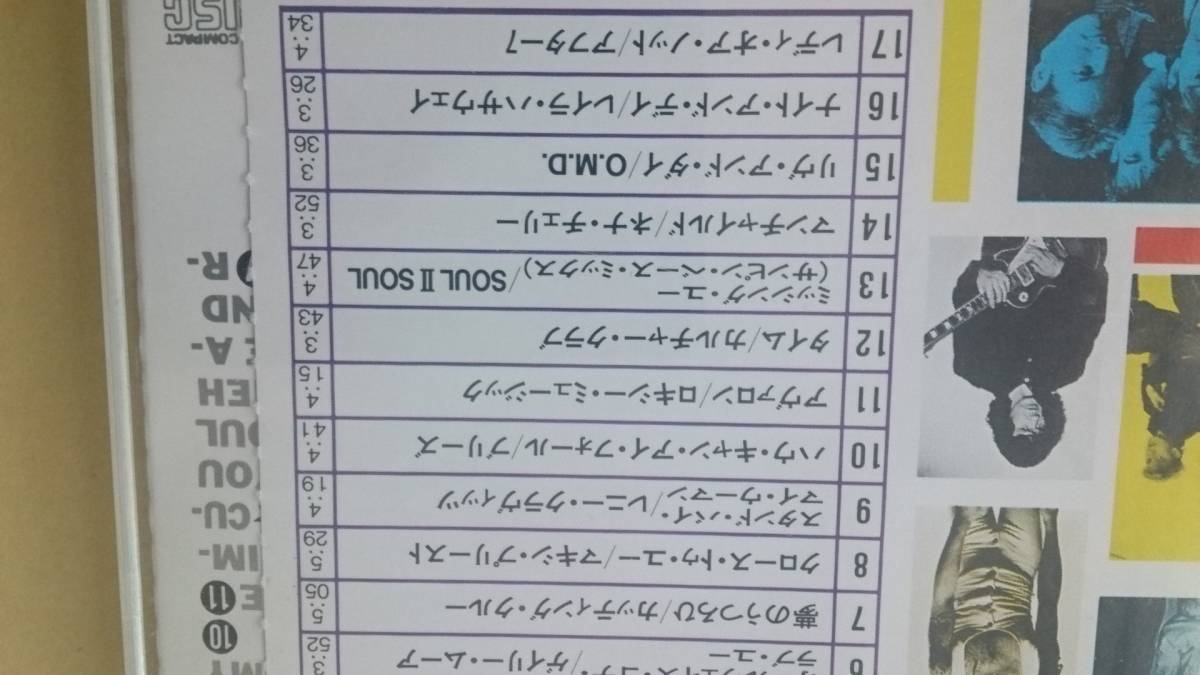 6 ラブ・ユー /ゲイリー・ムーア 3:52
7 夢のうつろひ/カッティング・クルー 5:05
8 クロース・トゥ・ユー/マキシ・プリースト 5:29
9 スタンド・バイ・
マイ・ウーマン/レニー・クラヴィッツ 4:19
10 ハウ・キャン・アイ・フォール/ブリーズ 4:41
11 アヴァロン/ロキシー・ミュージック 4:15
12 タイム/カルチャー・クラブ 3:43
13 ミッシング・ユー
(サンピン・ベース・ミックス)/SOUL II SOUL 4:47
14 マンチャイルド/ネナ・チェリー 3:52
15 リヴ・アンド・ダイ/O.M.D. 3:36
16 ナイト・アンド・デイ/レイラ・ハサウェイ 3:26
17 レディ・オア・ノット/アフター7 4:34
MY
10
E 11
IM-
CU-
YOU
OUL
E A-
ND
R-
COMPACT